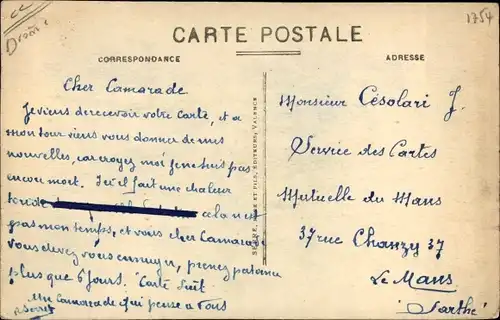 Drôme
1254
CARTE POSTALE
CORRESPONDANCE
ADRESSE
Cher Camarade
Je viens de recevoir votre Carte, et a
mon tour viens vous donner de mes
nouvelles, car croyez moi je ne suis pas
encore mort. Ici il fait une chaleur
cela n'est
pas mon temps, et vous cher Camarade
vous devez vous ennuyer, prenez patience
plus que 6 jours. Carte suit
Un Camarade qui pense a vous
ET FILS, ÉDITEURS, VALENCE
Monsieur Césolari J.
Service des Cartes
Mutuelle du Mans
37 rue Chanzy 37
Le Mans
Sarthe